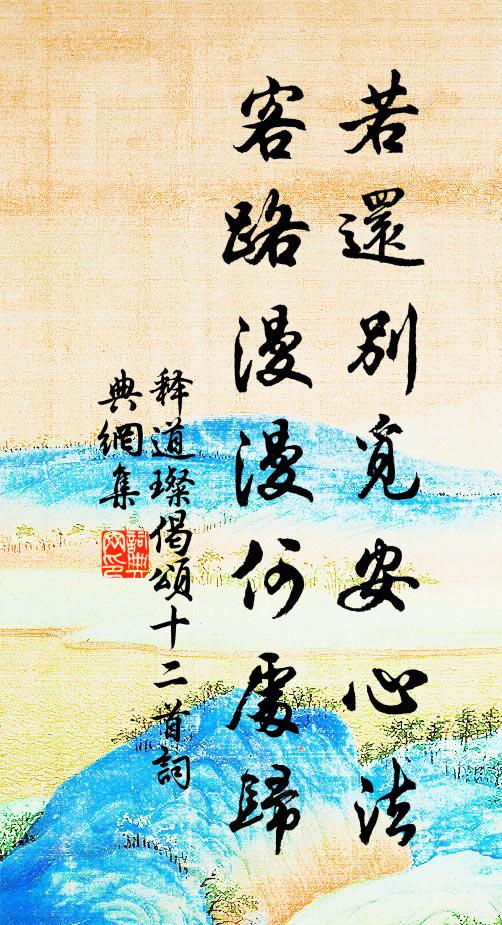 若還別覓安心法
客路漫漫何處歸
释道璨偈頌十二首詞
典網集
詞典
网印